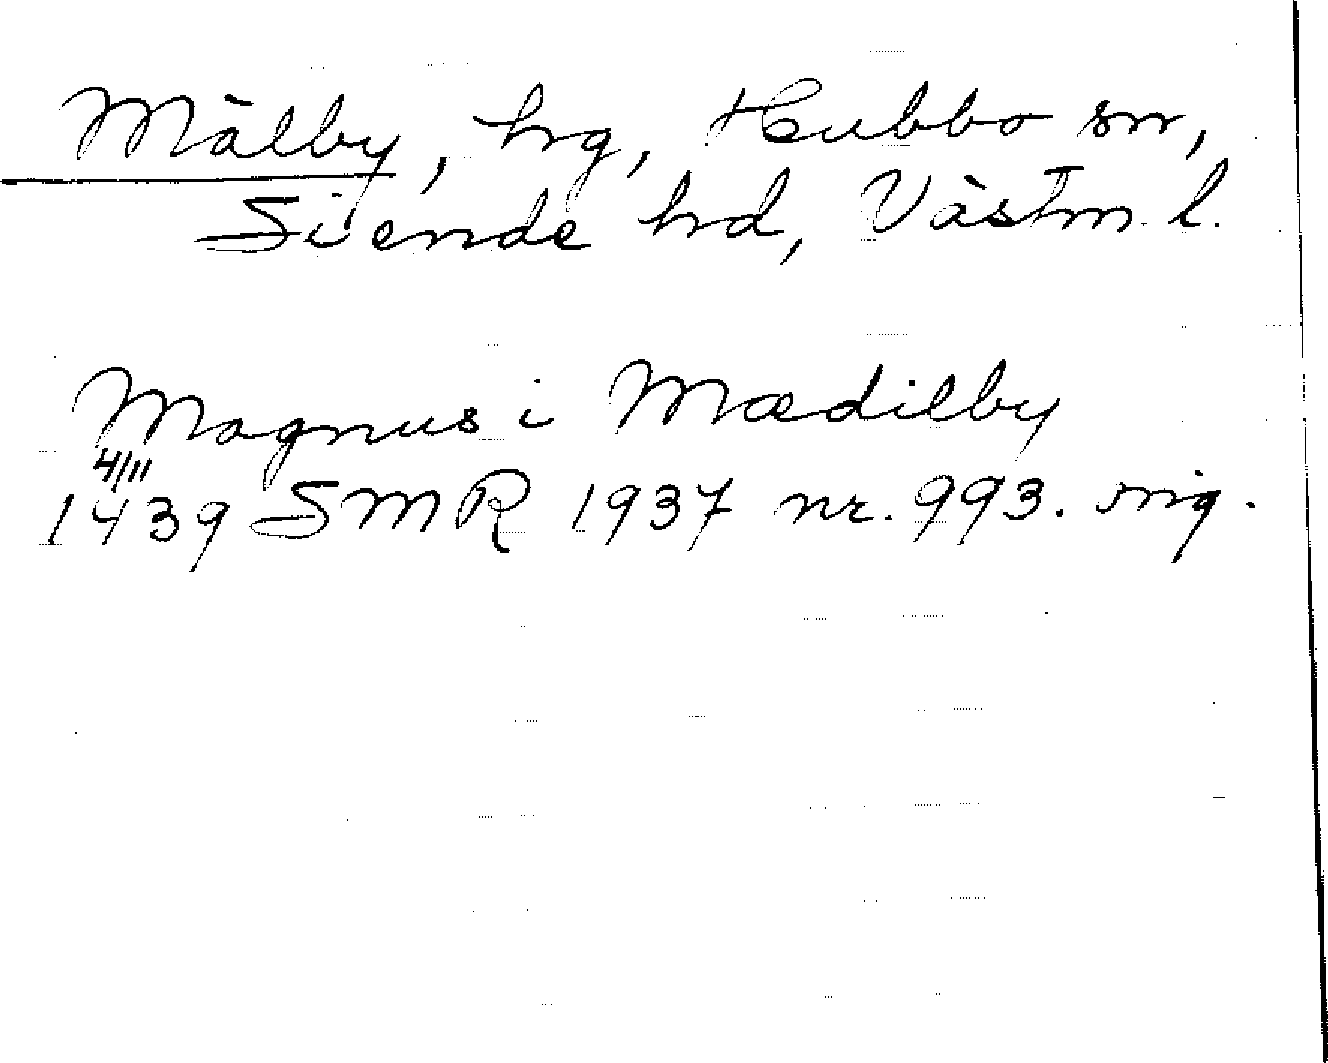 Mälby, hg, Hubbo sn,
Siende hd, Västm. l.
Magnus i Mædilby
4/11
1439 SMR 1937 nr. 993. orig.